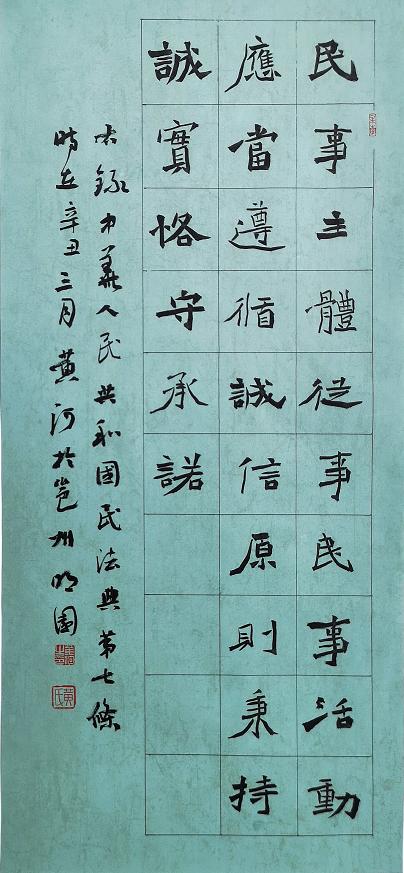 民事主體從事民事活動
應當遵循誠信原則秉持
誠實恪守承諾
中華人民共和國民法典第七條
時在辛丑三月黄河於邕州明園